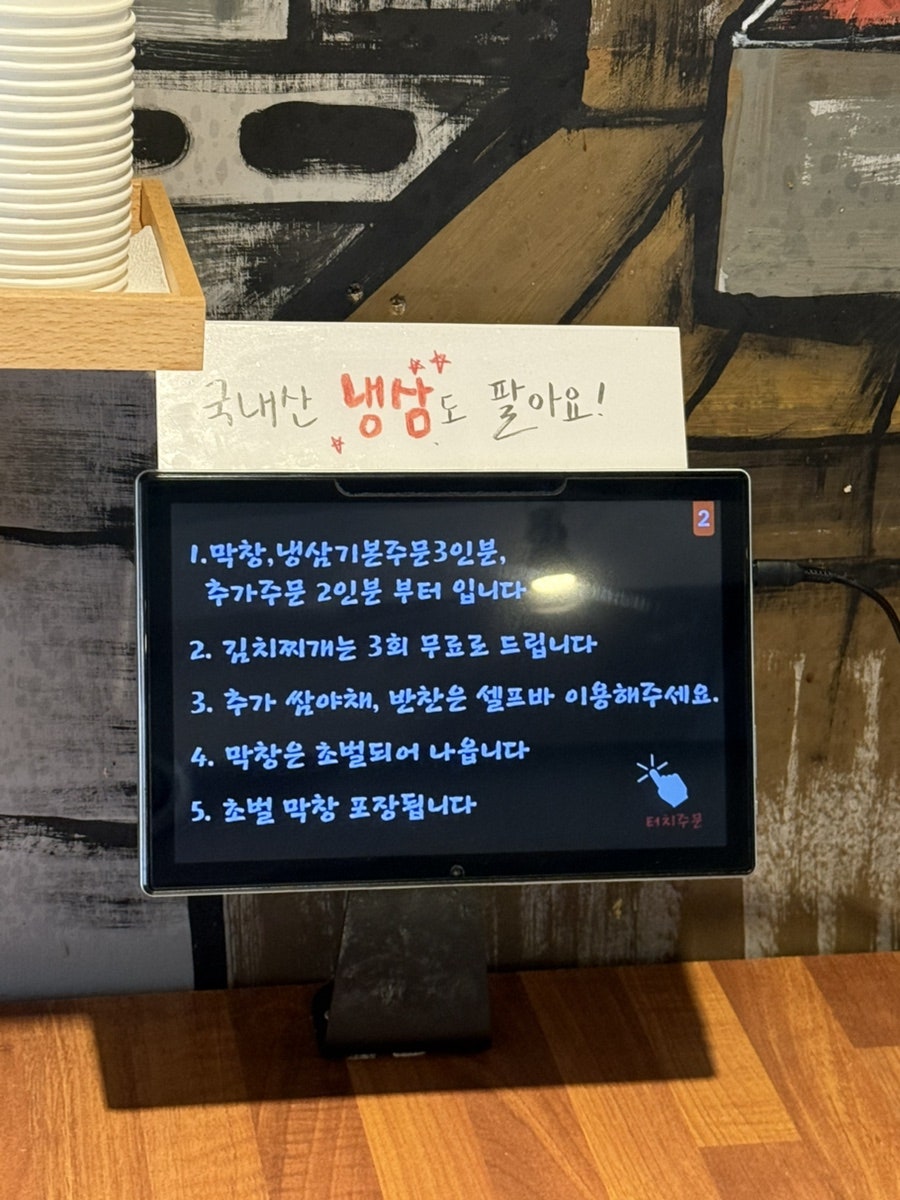 국내산 냉삼도 팔아요!
2
1.막창,냉삼기본주문3인분,
추가주문 2인분 부터 입니다
2. 김치찌개는 3회 무료로 드립니다
3. 추가 쌈야채, 반찬은 셀프바 이용해주세요.
4. 막창은 초벌되어 나옵니다
5. 초벌 막창 포장됩니다
터치주문